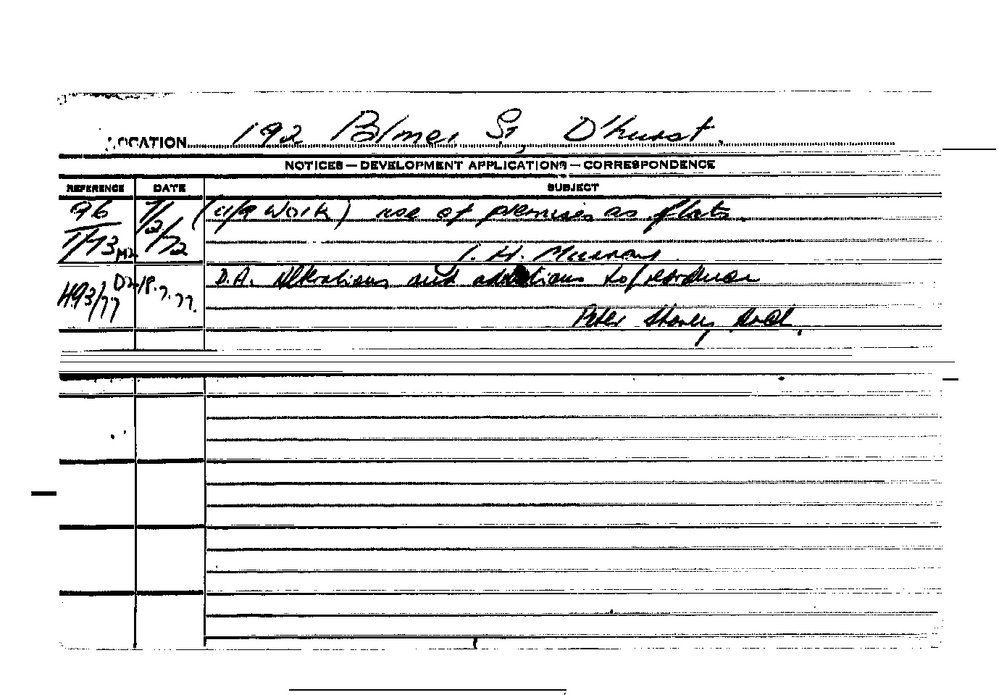 LOCATION 192 Palmer St, D'hurst.
NOTICES — DEVELOPMENT APPLICATIONS — CORRESPONDENCE
REFERENCE DATE SUBJECT
96 7/2/72 (u/a Work) use of premises as flats.
1/73 M2 I. H.
D.A. Alterations and additions to
493/77 D2 18.7.77.
Peter